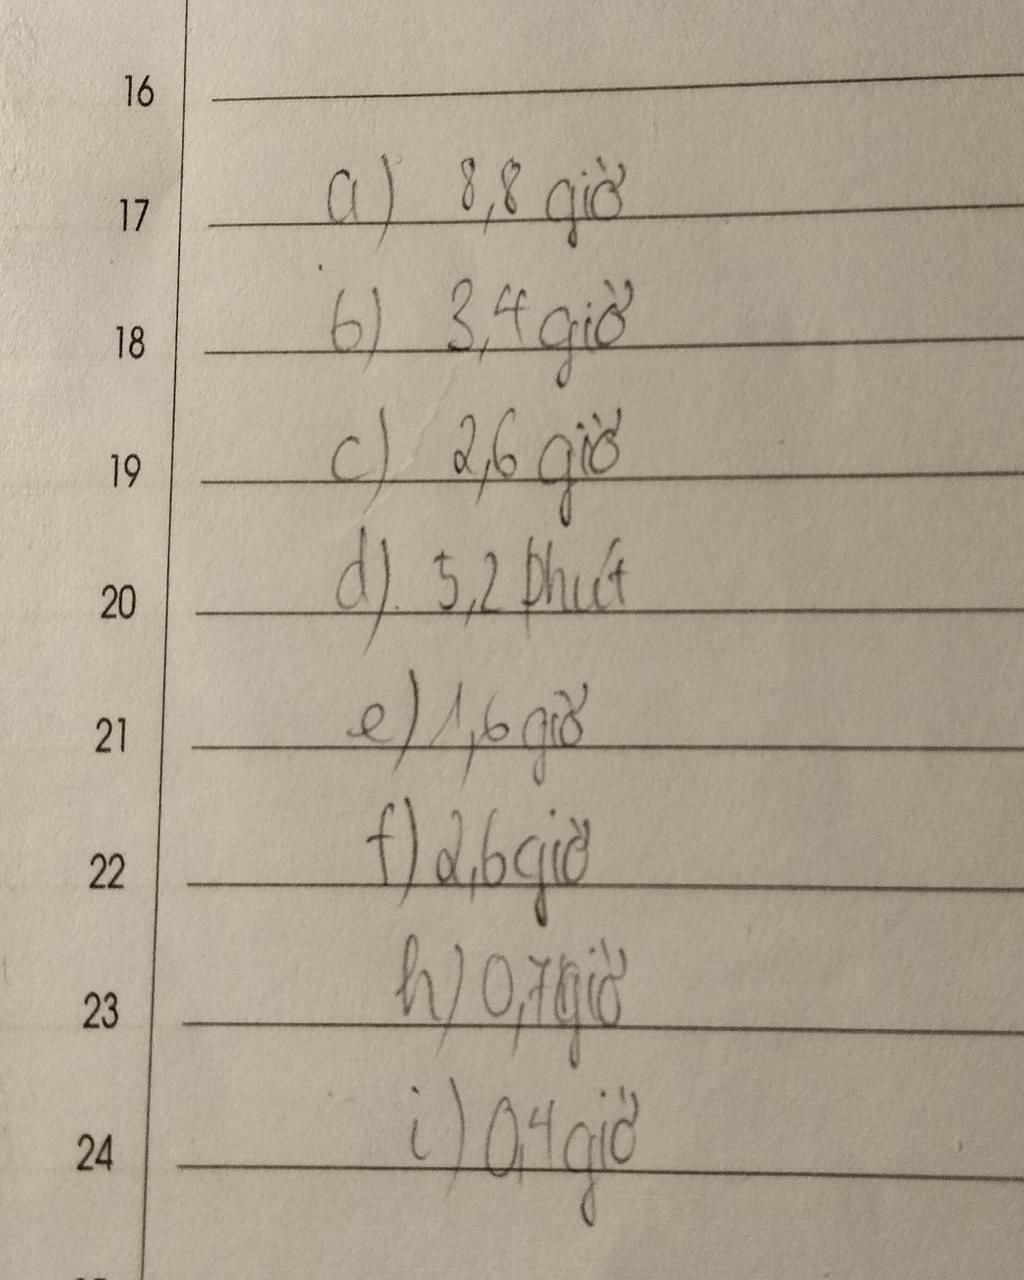 16
17 a) 8,8 giờ
18 b) 3,4 giờ
19 c) 2,6 giờ
20 d). 5,2 phút
21 e) 1,6 giờ
22 f) 2,6 giờ
23 h) 0,7 giờ
24 i) 0,4 giờ